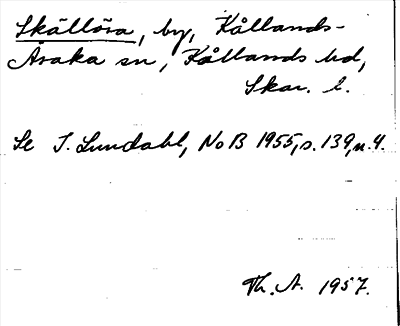 Skällöra, by, Kållands-
Åsaka sn, Kållands hd,
Skar. l.
Se I. Lundahl, NoB 1955, s. 139, n. 4.
Th. A. 1957.